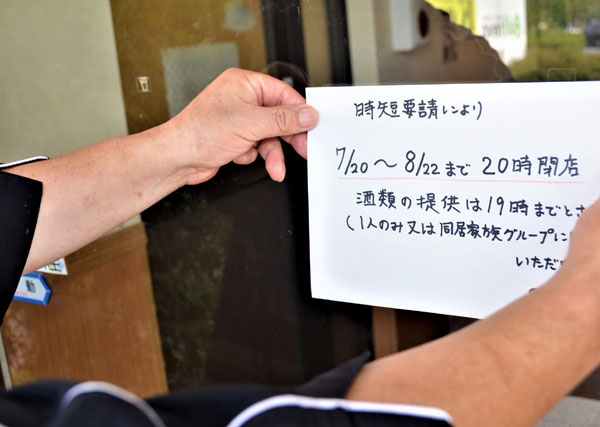 時短要請により
7/20〜8/22まで 20時閉店
酒類の提供は19時までとさ
(1人のみ又は同居家族グループに
いただ